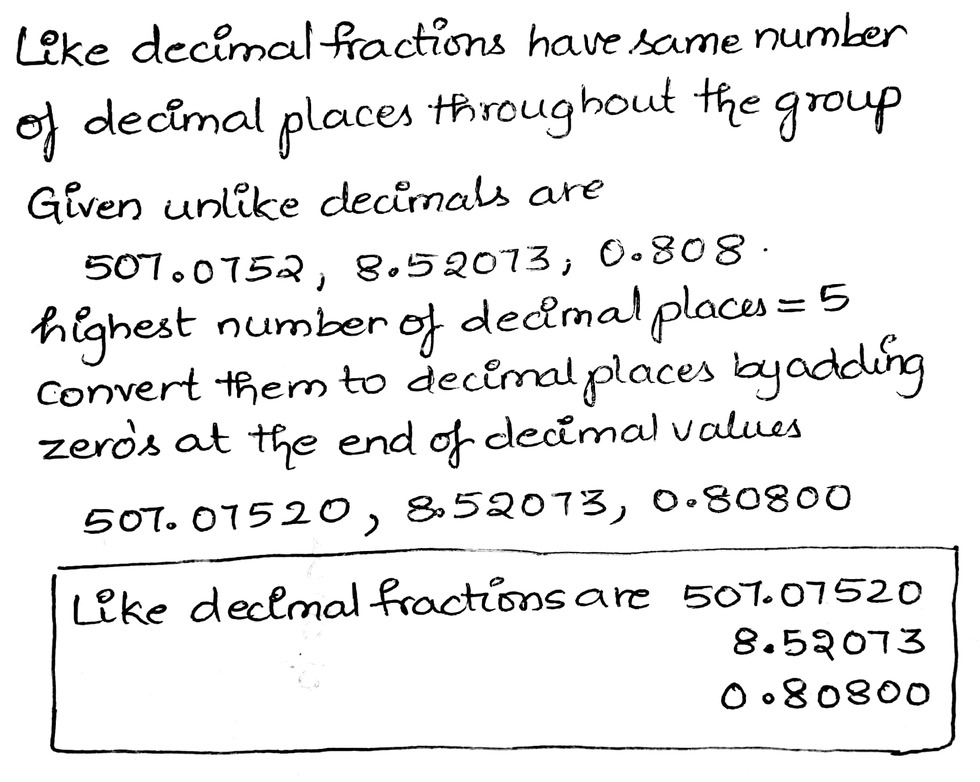 Like decimal fractions have same number
of decimal places throughout the group
Given unlike decimals are
507.0752, 8.52073, 0.808.
highest number of decimal places = 5
convert them to decimal places by adding
zero's at the end of decimal values
507.07520, 8.52073, 0.80800
Like decimal fractions are 507.07520
8.52073
0.80800